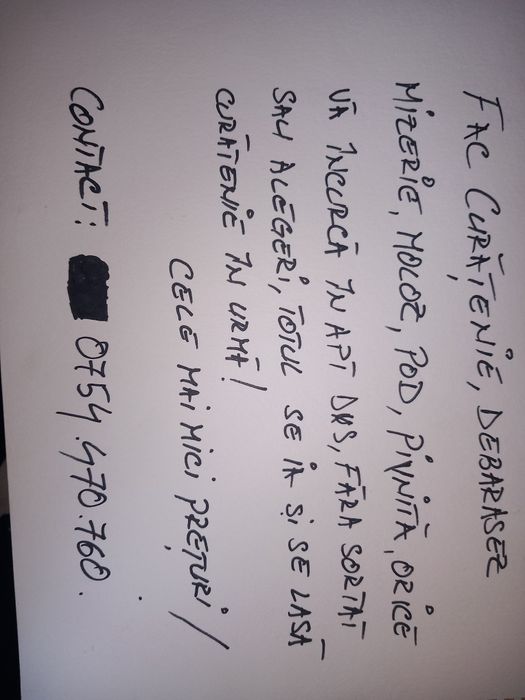 FAC CURĂȚENIE, DEBARASEZ
MIZERIE, MOLOZ, POD, PIVNITĂ, ORICE
VĂ ÎNCURCĂ ÎN APT DVS, FĂRĂ SORTAT
SAU ALEGERI, TOTUL SE IA ȘI SE LASĂ
CURĂTENIE ÎN URMĂ!
CELE MAI MICI PREȚURI/
CONTACT: 0754.470.760.